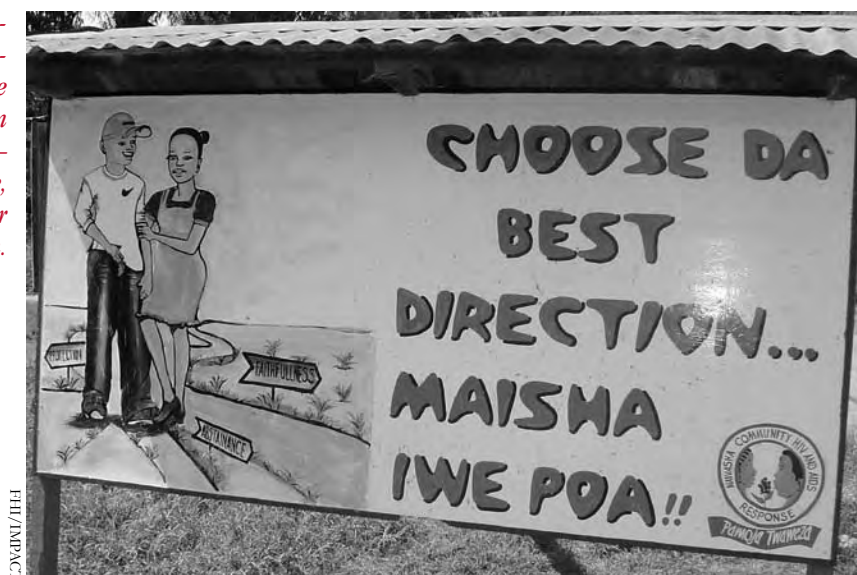 e
n
,
r
.
CHOOSE DA
BEST
DIRECTION...
MAISHA
IWE POA!!
PROTECTION
FAITHFULLNESS
ABSTAINANCE
NAIVASHA COMMUNITY HIV AND AIDS
RESPONSE
PAMOJA TWAWEZA
FHI/IMPAC